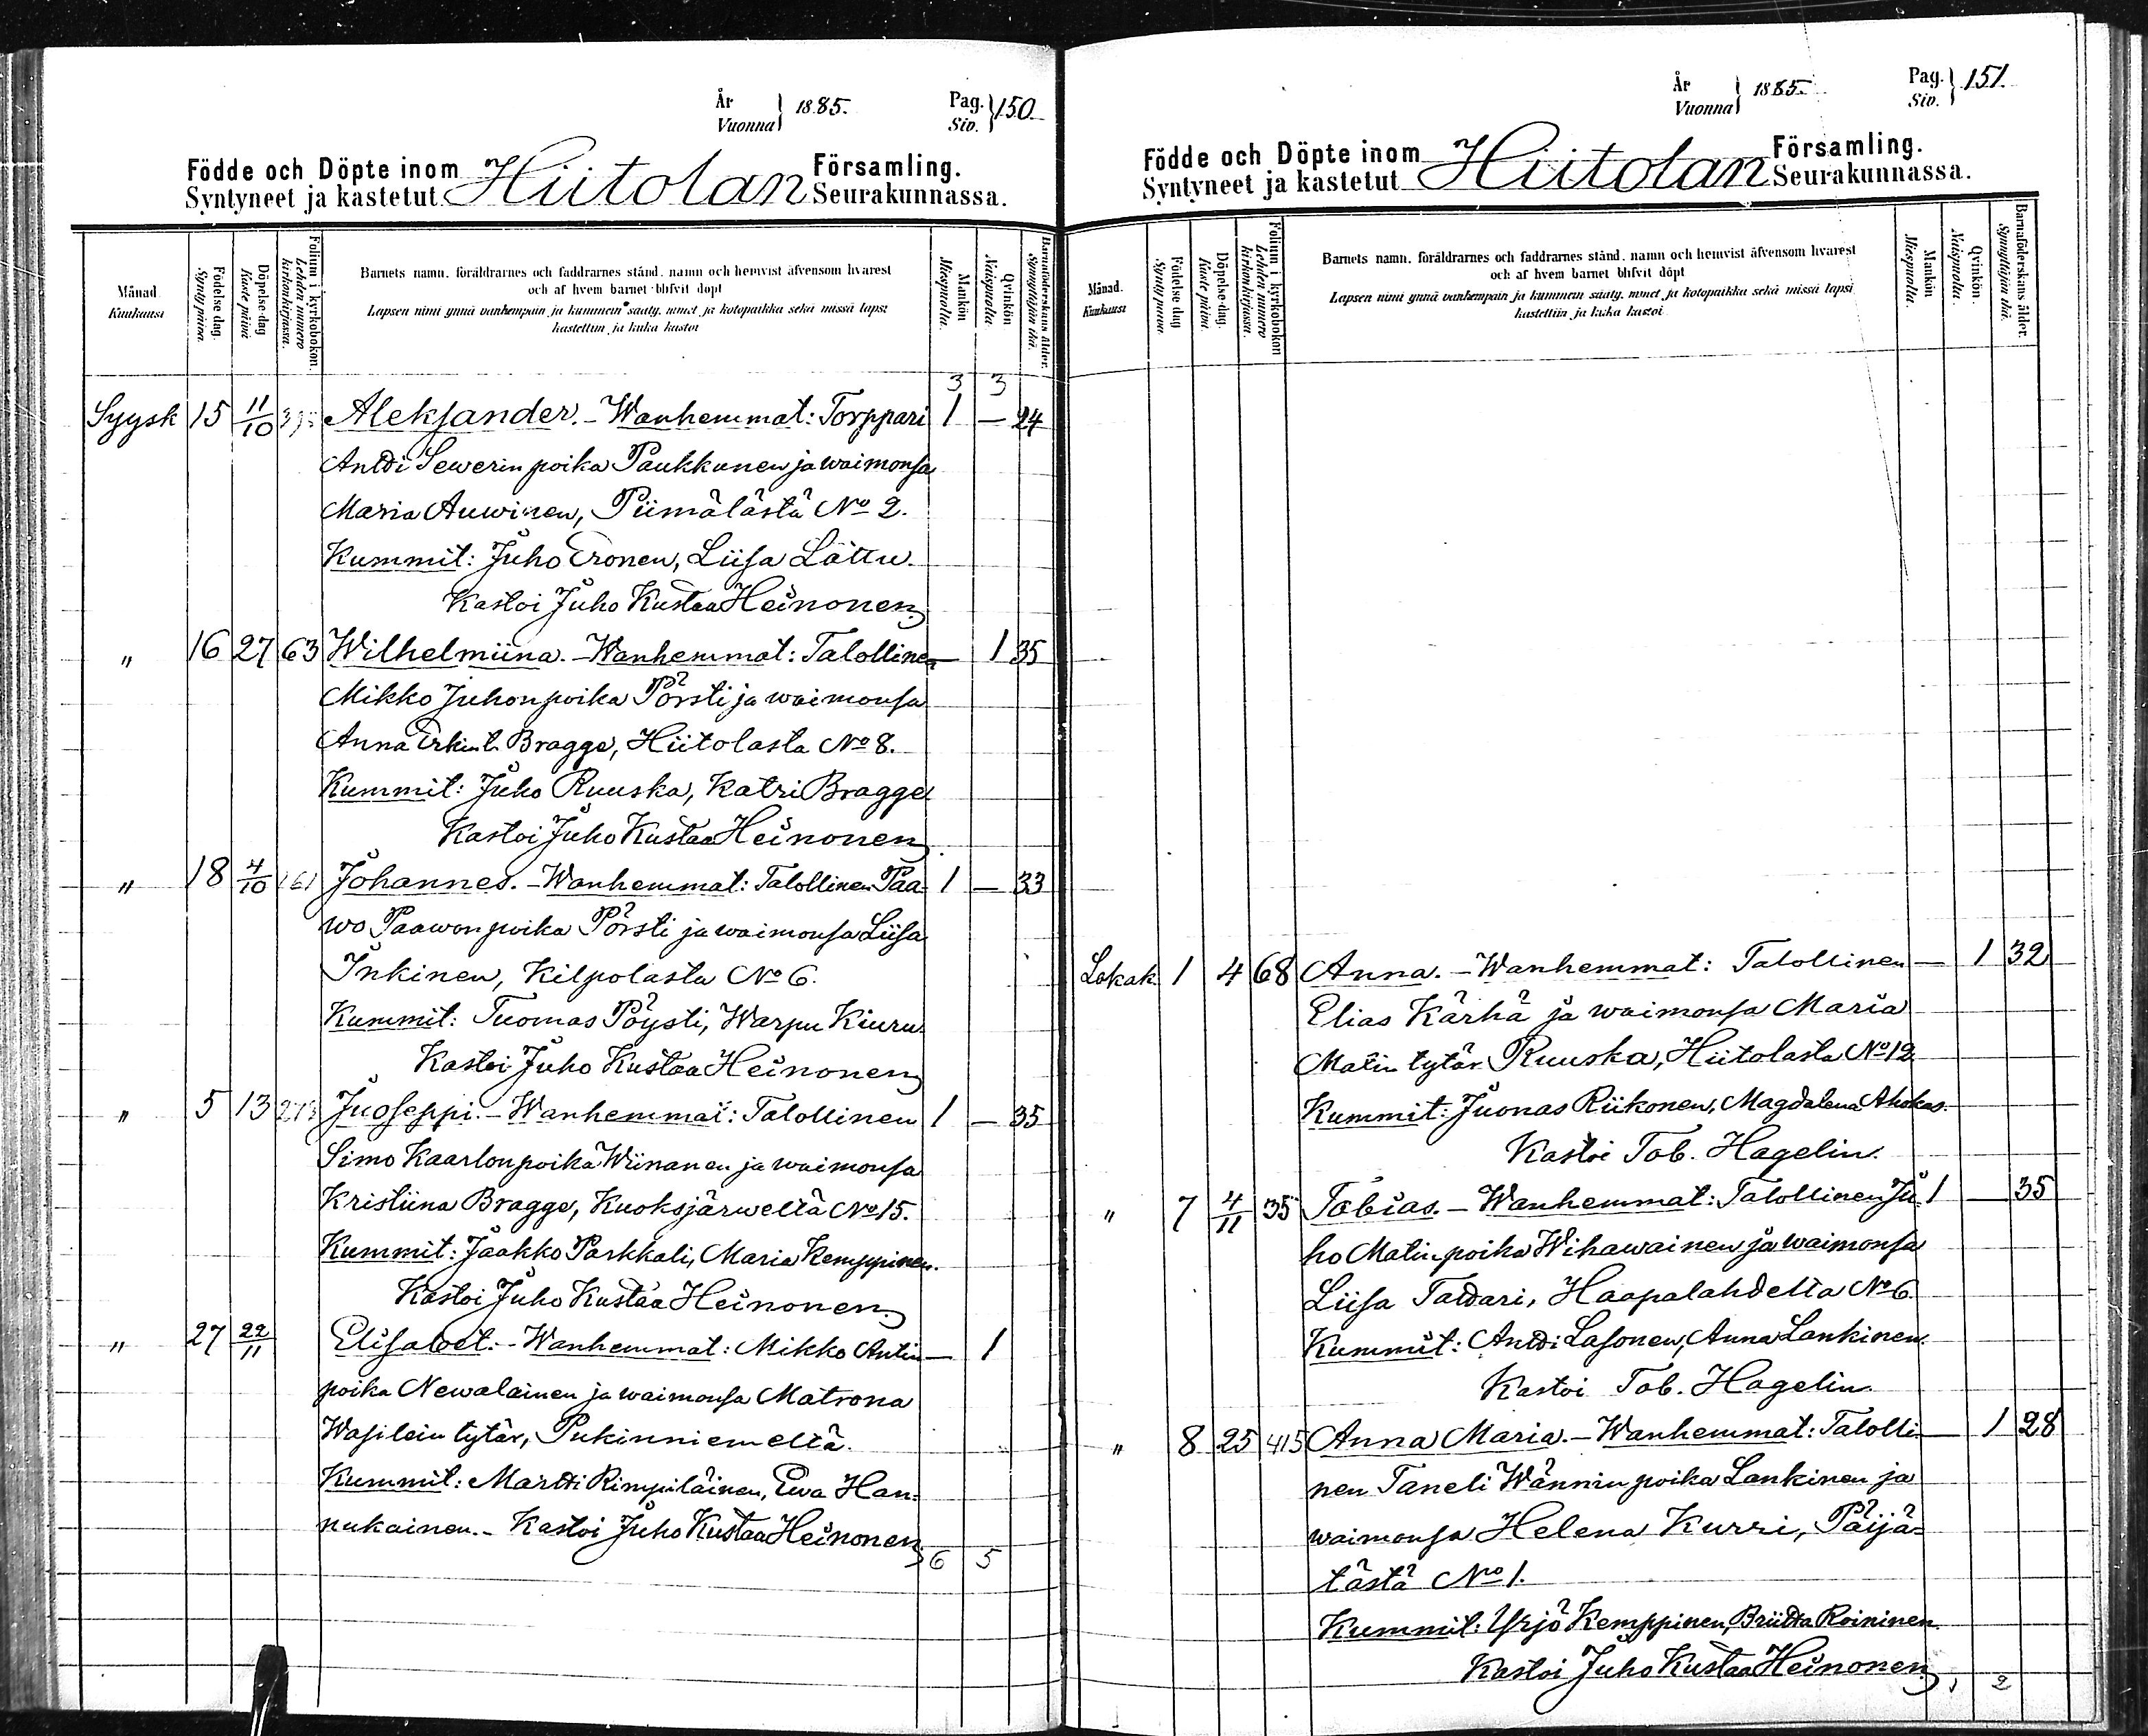 År
Vuonna} 1885.
Pag.
Siv.} 150
Födde och Döpte inom Hiitolan Församling.
Syntyneet ja kastetut Seurakunnassa.
Månad.
Kuukausi
Födelse dag.
Synty päivä.
Döpelse-dag
Kaste päivä
Folium i kyrkobokon
Lehden numero
kirkonkirjassa.
Barnets namn. föräldrarnes och faddrarnes stånd. namn och hemvist äfvensom hvarest
och af hvem barnet blifvit döpt
Lapsen nimi ynnä vanhempain ja kummein sääty, nimet ja kotopaikka sekä missä lapsi
kastettiin ja kuka kastoi
Mankön
Miespuolia.
Qvinkön
Naispuolia
Barnaföderskans ålder.
Synnyttäjän ikä.
3 3
Syysk 15 11/10 Aleksander. - Wanhemmat: Torppari 1 — 24
Antti Sewerin poika Paukkunen ja waimonsa
Maria Auwinen, Piimälästä No 2.
Kummit: Juho Eronen, Liisa Lättu.
Kastoi Juho Kustaa Heinonen
" 16 27 63 Wilhelmiina. - Wanhemmat: Talollinen — 1 35
Mikko Juhonpoika Pörsti ja waimonsa
Anna Erkin t. Bragge, Hiitolasta No 8.
Kummit: Juho Ruuska, Katri Bragge
Kastoi Juho Kustaa Heinonen
" 18 4/10 161 Johannes. - Wanhemmat: Talollinen Paa 1 — 33
wo Paawon poika Pörsti ja waimonsa Liisa
Inkinen, Kilpolasta No 6.
Kummit: Tuomas Pöysti, Warpu Kiuru
Kastoi Juho Kustaa Heinonen
" 5 13 Juoseppi. - Wanhemmat: Talollinen 1 — 35
Simo Kaarlonpoika Wiinanen ja waimonsa
Kristiina Bragge, Kuoksjärweltä No 15.
Kummit: Jaakko Parkkali, Maria Kemppinen.
Kastoi Juho Kustaa Heinonen
" 27 22/11 Elisabet. - Wanhemmat: Mikko Antin — 1
poika Newalainen ja waimonsa Matrona
Wasilein tytär, Pukinniemeltä.
Kummit: Martti Rimpiläinen, Ewa Han-
nukainen. - Kastoi Juho Kustaa Heinonen
6 5
År
Vuonna} 1885.
Pag.
Siv.} 151.
Födde och Döpte inom Hiitolan Församling.
Syntyneet ja kastetut Seurakunnassa.
Månad.
Kuukausi
Födelse dag
Synty päivä
Döpelse-dag.
Kaste päivä.
Folium i kyrkobokon
Lehden numero
kirkonkirjassa.
Barnets namn. föräldrarnes och faddrarnes stånd. namn och hemvist äfvensom hvarest
och af hvem barnet blifvit döpt
Lapsen nimi ynnä vanhempain ja kummein sääty, nimet ja kotopaikka sekä missä lapsi
kastettiin ja kuka kastoi
Mankön
Miespuolia.
Qvinkön.
Naispuolia.
Barnaföderskans ålder.
Synnyttäjän ikä.
Lokak 1 4 68 Anna. - Wanhemmat: Talollinen — 1 32
Elias Kärhä ja waimonsa Maria
Matin tytär Ruuska, Hiitolasta No 12
Kummit: Juonas Riikonen, Magdalena Ahokas.
Kastoi Tob. Hagelin.
" 7 4/11 35 Tobias. - Wanhemmat: Talollinen Ju 1 — 35
ho Matinpoika Wihawainen ja waimonsa
Liisa Tattari, Haapalahdelta No 6.
Kummit: Antti Lasonen, Anna Lankinen.
Kastoi Tob. Hagelin
" 8 25 415 Anna Maria. - Wanhemmat: Talolli — 1 28
nen Taneli Wännin poika Lankinen ja
waimonsa Helena Kurri, Päijä-
tästä No 1.
Kummit: Yrjö Kemppinen, Briitta Roininen.
Kastoi Juho Kustaa Heinonen
1 2